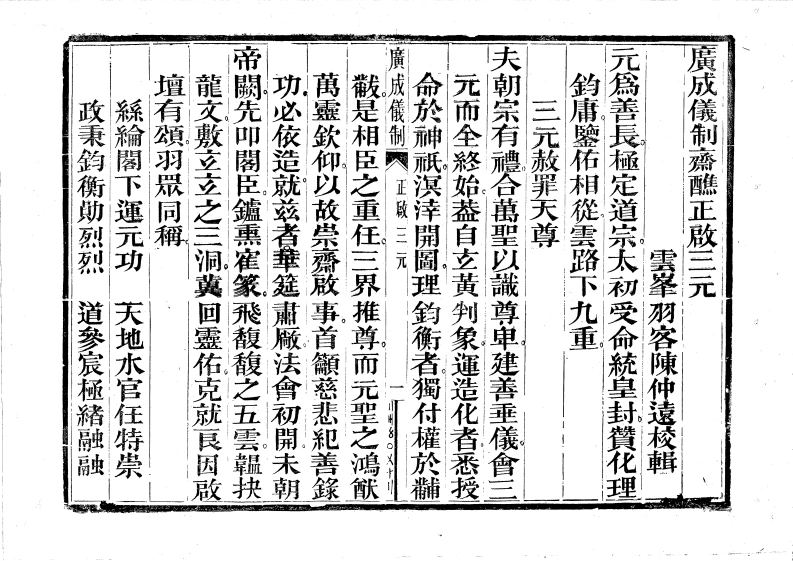 廣成儀制齋醮正啟三元
雲峯羽客陳仲遠校輯
元爲善長極定道宗太初受命統皇封贊化理
鈞庸鑒佑相從雲路下九重
三元赦罪天尊
夫朝宗有禮合萬聖以識尊卑建善垂儀會三
元而全終始葢自玄黃判象運造化者悉授
命於神祇溟涬開圖理鈞衡者獨付權於黼
廣成儀制 正啟三元 一
黻是相臣之重任三界推尊而元聖之鴻猷
萬靈欽仰以故崇齋啟事首籲慈悲紀善錄
功必依造就兹者華筵肅厰法會初開未朝
帝闕先叩閣臣鑪熏寉篆飛馥馥之五雲韞抉
龍文敷玄玄之三洞冀回靈佑克就良因啟
壇有頌羽眾同稱
絲綸閣下運元功 天地水官任特崇
政秉鈞衡勛烈烈 道參宸極緒融融